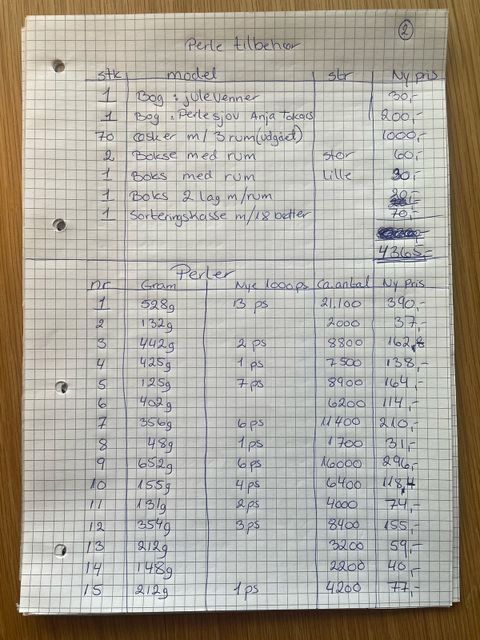 2
Perle tilbehør
stk model str Ny pris
1 Bog : julevenner 30,-
1 Bog : Perlesjov Anja Takacs 200,-
70 æsker m/ 3 rum (udgået) 1000,-
2 Bokse med rum stor 60,-
1 Boks med rum Lille 30,-
1 Boks 2 lag m/rum
1 Sorteringskasse m/18 bøtter 70,-
4365,-
Perler
nr Gram Nye 1000ps Ca. antal Ny pris
1 528g 13 ps 21,100 390,-
2 132g 2000 37,-
3 442g 2 ps 8800 162,8
4 425g 1 ps 7500 138,-
5 125g 7 ps 8900 164,-
6 402g 6200 114,-
7 356g 6 ps 11400 210,-
8 48g 1 ps 1700 31,-
9 652g 6 ps 16000 296,-
10 155g 4 ps 6400 118,4
11 131g 2 ps 4000 74,-
12 354g 3 ps 8400 155,-
13 212g 3200 59,-
14 148g 2200 40,-
15 212g 1 ps 4200 77,-